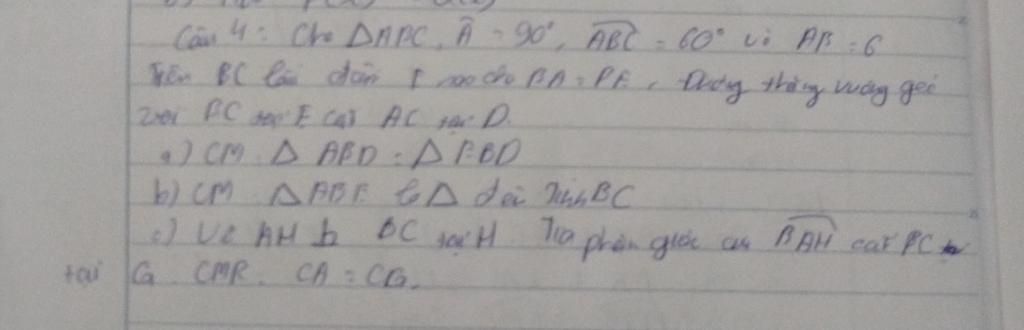 Câu 4: Cho ΔABC, Â = 90°, ABC = 60° và AB = 6
Trên BC lấy điểm E sao cho BA = BE, Đường thẳng vuông góc
với BC tại E cắt AC tại D.
a) CM Δ ABD = Δ EBD
b) CM Δ ABE là Δ đều Tính BC
c) Vẽ AH ⊥ BC tại H Tia phân giác của BAH cắt BC
tại G CMR. CA = CG.